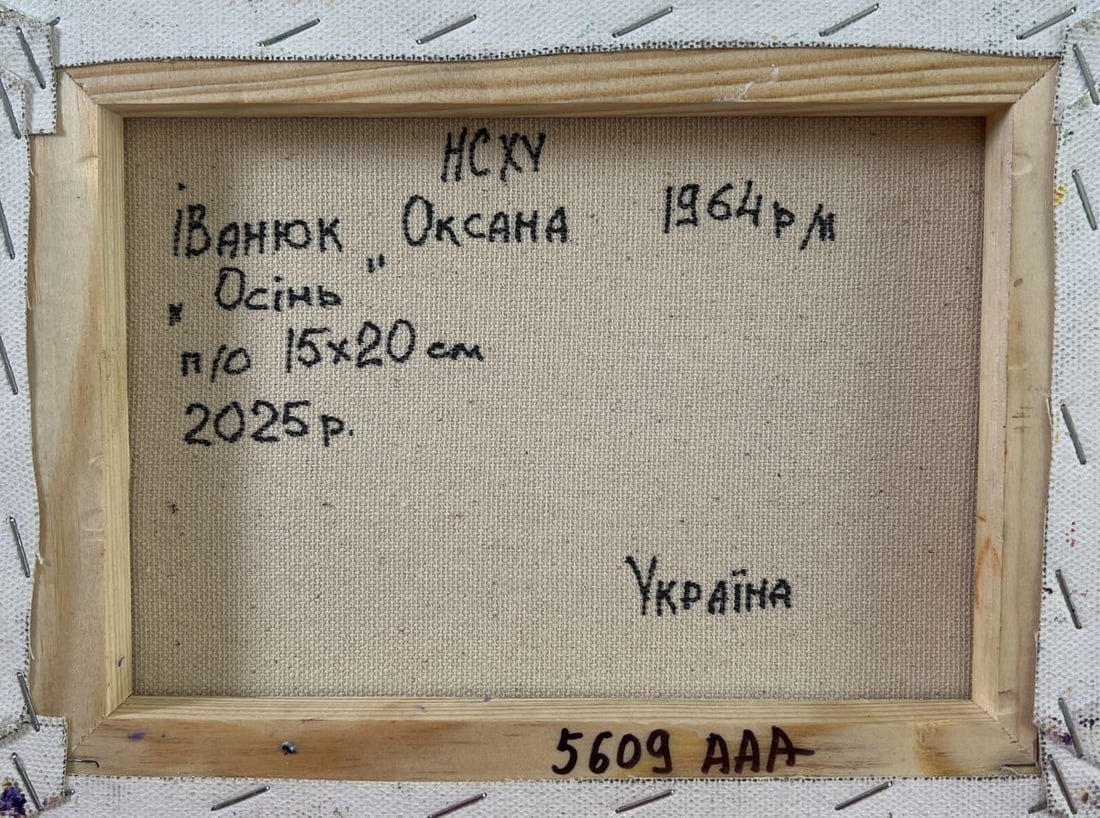 НСХУ
Іванюк Оксана 1964 р/н
„Осінь"
п/о 15х20 см
2025 р.
Україна
5609 ААА